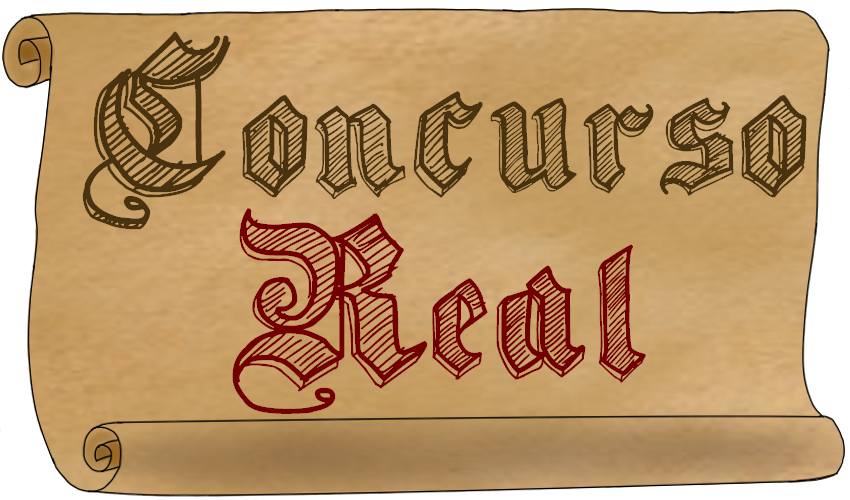 Concurso
Real